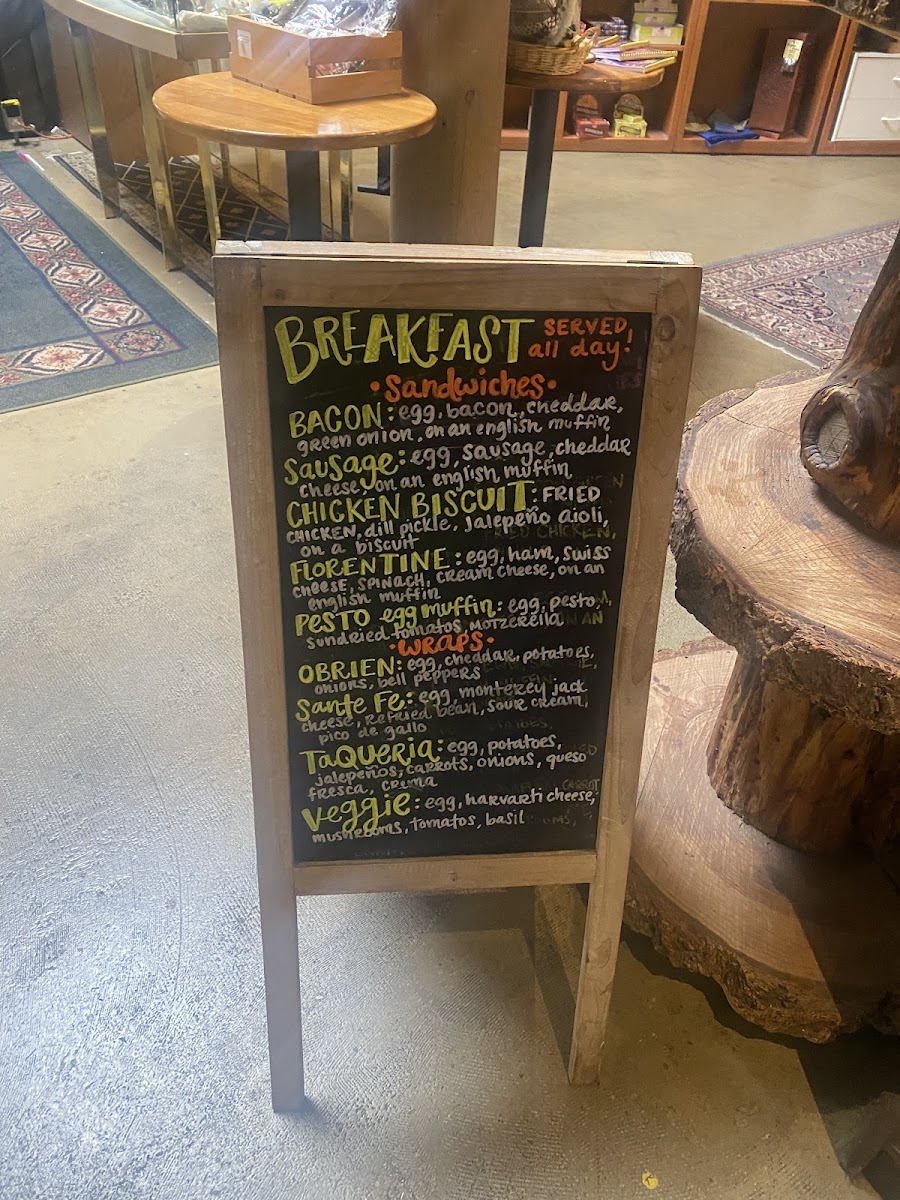 BREAKFAST SERVED all day!
•Sandwiches•
BACON: egg, bacon, cheddar,
green onion, on an english muffin
Sausage: egg, sausage, cheddar
cheese, on an english muffin
CHICKEN BISCUIT: FRIED
CHICKEN, dill pickle, Jalepeño aioli,
on a biscuit
FLORENTINE: egg, ham, Swiss
cheese, SPINACH, cream cheese, on an
english muffin
PESTO egg muffin: egg, pesto,
sundried tomatos, MOTZERELLA
•WRAPS•
OBRIEN: egg, cheddar, potatoes,
onions, bell peppers
Sante Fe: egg, monterey jack
cheese, Refried bean, sour cream,
pico de gallo
TaQUeria: egg, potatoes,
jalepeños, carrots, onions, queso
fresca, crema
veggie: egg, harvarti cheese,
mushrooms, tomatos, basil